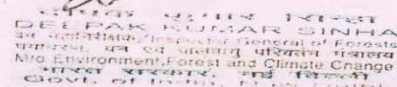 दीपक कुमार सिन्हा
DEEPAK KUMAR SINHA
वन महानिरीक्षक/Inspector General of Forests
पर्यावरण, वन एवं जलवायु परिवर्तन मंत्रालय
M/o Environment, Forest and Climate Change
भारत सरकार, नई दिल्ली
Govt. of India, New Delhi